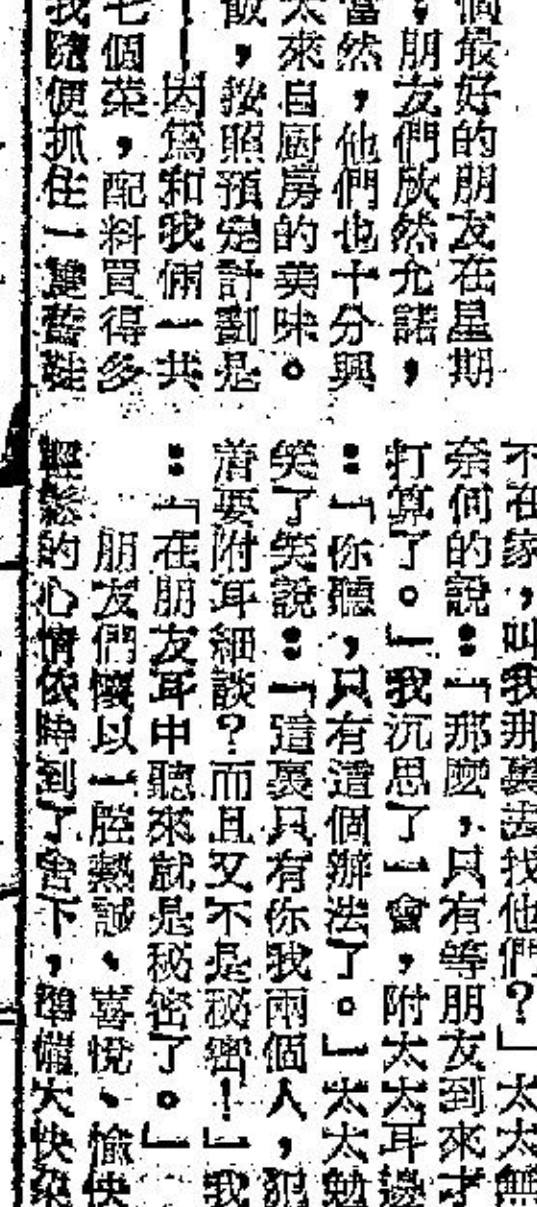 個最好的朋友在星期
，朋友們欣然允諾，
當然，他們也十分興
太來自厨房的美味。
飯，按照預定計劃是
——因爲和我倆一共
七個菜，配料買得多
我隨便抓住一雙舊鞋
不在家，叫我那裏去找他們？」太太無
奈何的說：「那麽，只有等朋友到來才
打算了。」我沉思了一會，附太太耳邊
：「你聽，只有這個辦法了。」太太勉
笑了笑說：「這裏只有你我兩個人，犯
着要附耳細談？而且又不是秘密！」我
：「在朋友耳中聽來就是秘密了。」
朋友們懷以一腔熱誠、喜悅、愉快
輕鬆的心情依時到了舍下，準備大快朶